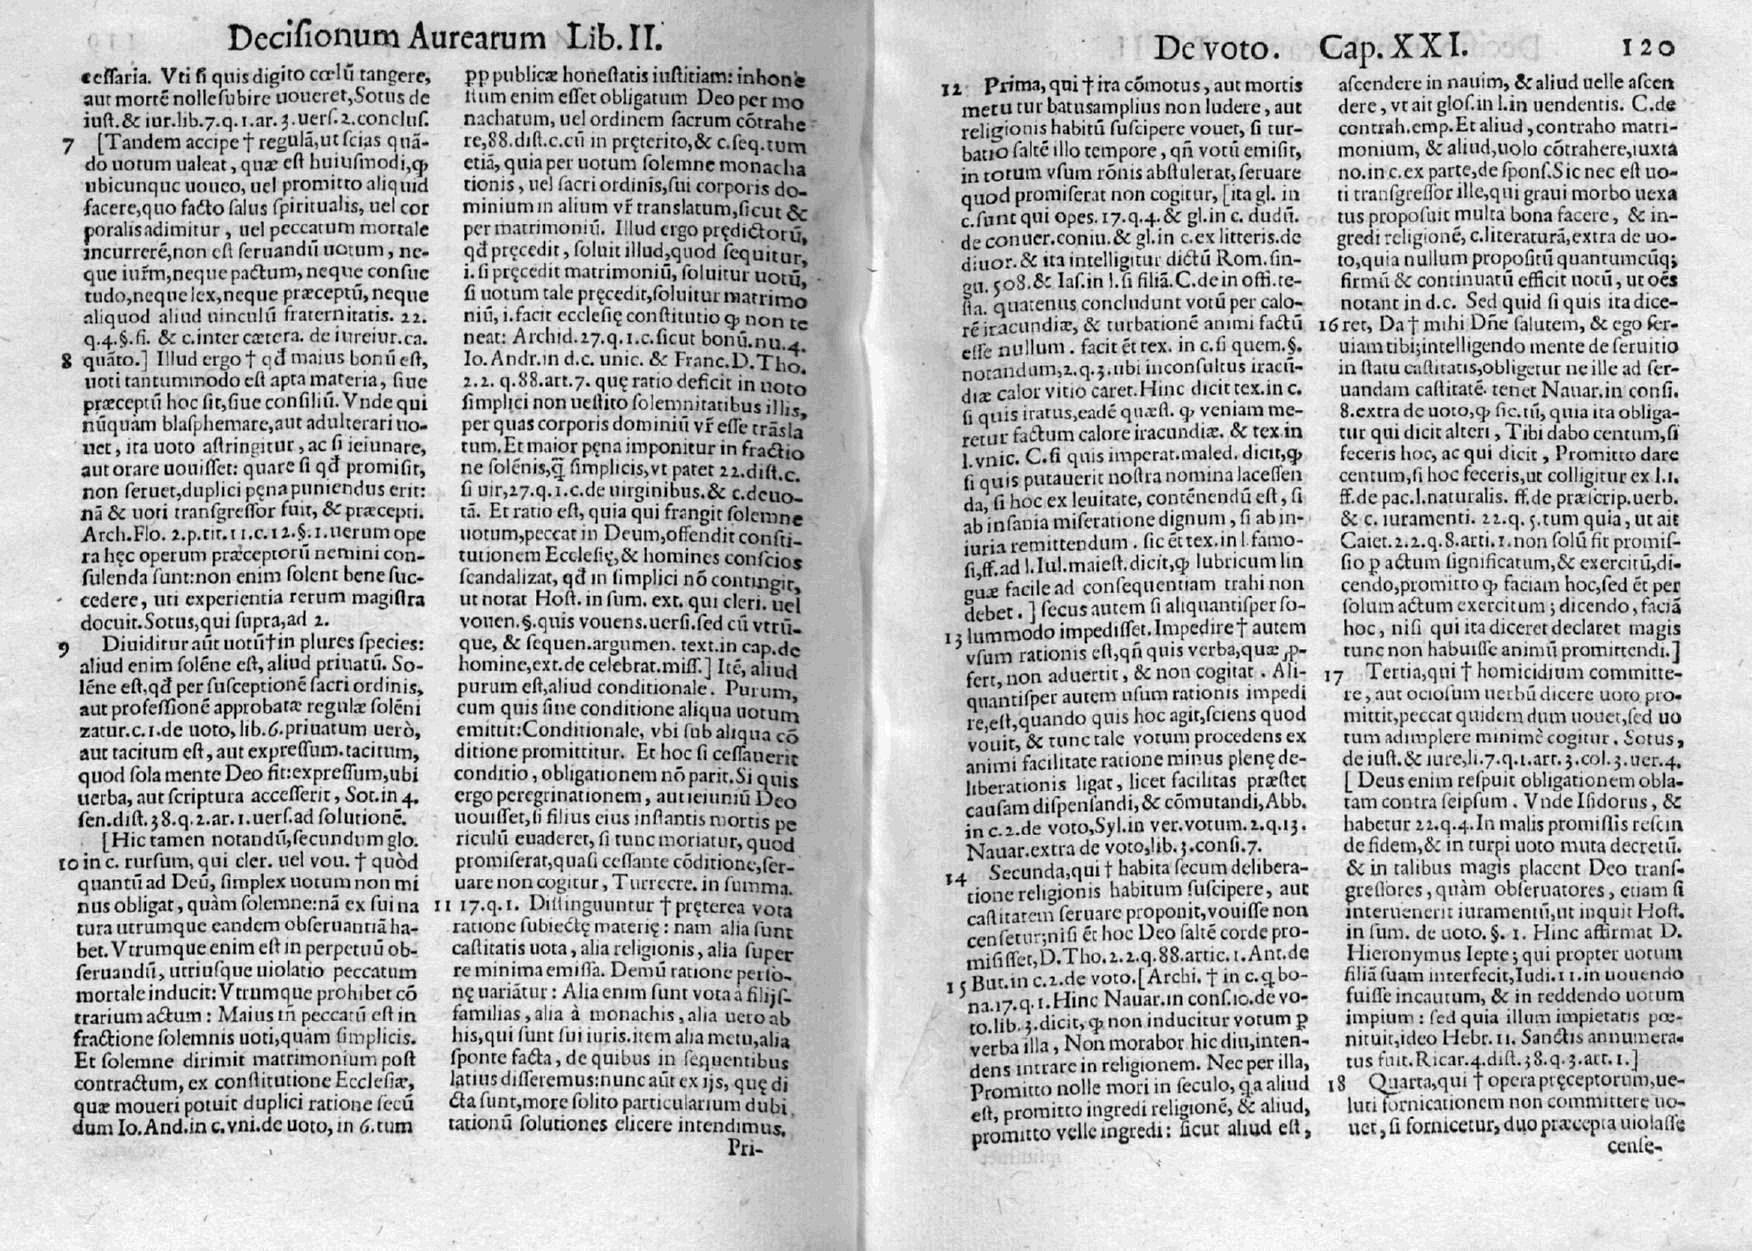 Decisionum Aurearum Lib. II.
cessaria. Vti si quis digito cœlū tangere,
aut mortē nolle subire uoueret, Sotus de
iust. & iur. lib. 7. q. 1. ar. 3. uers. 2. conclus.
7 [Tandem accipe † regulā, ut scias quā-
do uotum ualeat, quæ est huiusmodi, ꝙ
ubicunque uoueo, uel promitto aliquid
facere, quo facto salus spiritualis, uel cor
poralis adimitur, uel peccatum mortale
incurrerē, non est seruandū uotum, ne-
que iur̄m, neque pactum, neque consue
tudo, neque lex, neque præceptū, neque
aliquod aliud uinculū fraternitatis. 22.
q. 4. §. si. & c. inter cætera. de iureiur. ca.
8 quāto.] Illud ergo † qđ maius bonū est,
uoti tantummodo est apta materia, siue
præceptū hoc sit, siue consiliū. Vnde qui
nūquam blasphemare, aut adulterari uo-
uet, ita uoto astringitur, ac si ieiunare,
aut orare uouisset: quare si qđ promisit,
non seruet, duplici pęna puniendus erit:
nā & uoti transgressor fuit, & præcepti.
Arch. Flo. 2. p. tit. 11. c. 12. §. 1. uerum ope
ra hęc operum præceptorū nemini con-
sulenda sunt: non enim solent bene suc-
cedere, uti experientia rerum magistra
docuit. Sotus, qui supra, ad 2.
9 Diuiditur aūt uotū † in plures species:
aliud enim solēne est, aliud priuatū. So-
lēne est, qđ per susceptionē sacri ordinis,
aut professionē approbatæ regulæ solēni
zatur. c. 1. de uoto, lib. 6. priuatum uerò,
aut tacitum est, aut expressum. tacitum,
quod sola mente Deo fit: expressum, ubi
uerba, aut scriptura accesserit, Sot. in 4.
sen. dist. 38. q. 2. ar. 1. uers. ad solutionē.
[Hic tamen notandū, secundum glo.
10 in c. rursum, qui cler. uel vou. † quòd
quantū ad Deū, simplex uotum non mi
nus obligat, quàm solemne: nā ex sui na
tura utrumque eandem obseruantiā ha-
bet. Vtrumque enim est in perpetuū ob-
seruandū, utriusque uiolatio peccatum
mortale inducit: Vtrumque prohibet cō
trarium actum: Maius tñ peccatū est in
fractione solemnis uoti, quàm simplicis.
Et solemne dirimit matrimonium post
contractum, ex constitutione Ecclesiæ,
quæ moueri potuit duplici ratione secū
dum Io. And. in c. vni. de uoto, in 6. tum
pp publicæ honestatis iustitiam: inhone
stum enim esset obligatum Deo per mo
nachatum, uel ordinem sacrum cōtrahe
re, 88. dist. c. cū in pręterito, & c. seq. tum
etiā, quia per uotum solemne monacha
tionis, uel sacri ordinis, sui corporis do-
minium in alium vr̄ translatum, sicut &
per matrimoniū. Illud ergo prędictorū,
qđ pręcedit, soluit illud, quod sequitur,
i. si pręcedit matrimoniū, soluitur uotū,
si uotum tale pręcedit, soluitur matrimo
niū, i. facit ecclesię constitutio ꝙ non te
neat: Archid. 27. q. 1. c. sicut bonū. nu. 4.
Io. Andr. in d. c. unic. & Franc. D. Tho.
2. 2. q. 88. art. 7. quę ratio deficit in uoto
simplici non uestito solemnitatibus illis,
per quas corporis dominiū vr̄ esse trāsla
tum. Et maior pęna imponitur in fractio
ne solēnis, q̄ simplicis, vt patet 22. dist. c.
si uir, 27. q. 1. c. de uirginibus. & c. deuo-
tā. Et ratio est, quia qui frangit solemne
uotum, peccat in Deum, offendit consti-
tutionem Ecclesię, & homines conscios
scandalizat, qđ in simplici nō contingit,
ut notat Host. in sum. ext. qui cleri. uel
vouen. §. quis vouens. uersi. sed cū vtrū-
que, & sequen. argumen. text. in cap. de
homine, ext. de celebrat. miss.] Itē, aliud
purum est, aliud conditionale. Purum,
cum quis sine conditione aliqua uotum
emittit: Conditionale, vbi sub aliqua cō
ditione promittitur. Et hoc si cessauerit
conditio, obligationem nō parit. Si quis
ergo peregrinationem, aut ieiuniū Deo
uouisset, si filius eius instantis mortis pe
riculū euaderet, si tunc moriatur, quod
promiserat, quasi cessante cōditione, ser-
uare non cogitur, Turrecre. in summa.
11 17. q. 1. Distinguuntur † pręterea vota
ratione subiectę materię: nam alia sunt
castitatis uota, alia religionis, alia super
re minima emissa. Demū ratione perso-
nę uariātur: Alia enim sunt vota à filijs-
familias, alia à monachis, alia uero ab
his, qui sunt sui iuris. item alia metu, alia
sponte facta, de quibus in sequentibus
latius disseremus: nunc aūt ex ijs, quę di
cta sunt, more solito particularium dubi
tationū solutiones elicere intendimus.
Pri-
De voto. Cap. XXI. 120
12 Prima, qui † ira cōmotus, aut mortis
metu turbatus amplius non ludere, aut
religionis habitū suscipere vouet, si tur-
batio saltē illo tempore, qñ votū emisit,
in totum vsum rōnis abstulerat, seruare
quod promiserat non cogitur, [ita gl. in
c. sunt qui opes. 17. q. 4. & gl. in c. dudū.
de conuer. coniu. & gl. in c. ex litteris. de
diuor. & ita intelligitur dictū Rom. sin-
gu. 508. & Ias. in l. si filiā. C. de in offi. te-
sta. quatenus concludunt votū per calo-
rē iracundiæ, & turbationē animi factū
esse nullum. facit ēt tex. in c. si quem. §.
notandum, 2. q. 3. ubi inconsultus iracū-
diæ calor vitio caret. Hinc dicit tex. in c.
si quis iratus, eadē quæst. ꝙ veniam me-
retur factum calore iracundiæ. & tex. in
l. vnic. C. si quis imperat. maled. dicit, ꝙ
si quis putauerit nostra nomina lacessen
da, si hoc ex leuitate, contēnendū est, si
ab insania miseratione dignum, si ab in-
iuria remittendum. sic ēt tex. in l. famo-
si, ff. ad l. Iul. maiest. dicit, ꝙ lubricum lin
guæ facile ad consequentiam trahi non
debet.] secus autem si aliquantisper so-
13 lummodo impedisset. Impedire † autem
vsum rationis est, qñ quis verba, quæ ꝓ-
fert, non aduertit, & non cogitat. Ali-
quantisper autem usum rationis impedi
re, est, quando quis hoc agit, sciens quod
vouit, & tunc tale votum procedens ex
animi facilitate ratione minus plenę de-
liberationis ligat, licet facilitas præstet
causam dispensandi, & cōmutandi, Abb.
in c. 2. de voto, Syl. in ver. votum. 2. q. 13.
Nauar. extra de voto, lib. 3. consi. 7.
14 Secunda, qui † habita secum delibera-
tione religionis habitum suscipere, aut
castitatem seruare proponit, vouisse non
censetur; nisi ēt hoc Deo saltē corde pro-
misisset, D. Tho. 2. 2. q. 88. artic. 1. Ant. de
15 But. in c. 2. de voto. [Archi. † in c. q bo-
na. 17. q. 1. Hinc Nauar. in cons. 10. de vo-
to. lib. 3. dicit, ꝙ non inducitur votum ꝑ
verba illa, Non morabor hic diu, inten-
dens intrare in religionem. Nec per illa,
Promitto nolle mori in seculo, q̄a aliud
est, promitto ingredi religionē, & aliud,
promitto velle ingredi: sicut aliud est,
ascendere in nauim, & aliud uelle ascen
dere, vt ait glos. in l. in uendentis. C. de
contrah. emp. Et aliud, contraho matri-
monium, & aliud, uolo cōtrahere, iuxta
no. in c. ex parte, de spons. Sic nec est uo-
ti transgressor ille, qui graui morbo uexa
tus proposuit multa bona facere, & in-
gredi religionē, c. literaturā, extra de uo-
to, quia nullum propositū quantumcūq;
firmū & continuatū efficit uotū, ut oēs
notant in d. c. Sed quid si quis ita dice-
16 ret, Da † mihi Dñe salutem, & ego ser-
uiam tibi; intelligendo mente de seruitio
in statu castitatis, obligetur ne ille ad ser-
uandam castitatē. tenet Nauar. in consi.
8. extra de uoto, ꝙ sic. tū, quia ita obliga-
tur qui dicit alteri, Tibi dabo centum, si
feceris hoc, ac qui dicit, Promitto dare
centum, si hoc feceris, ut colligitur ex l. 1.
ff. de pac. l. naturalis. ff. de præscrip. uerb.
& c. iuramenti. 22. q. 5. tum quia, ut ait
Caiet. 2. 2. q. 8. arti. 1. non solū fit promis-
sio p actum significatum, & exercitū, di-
cendo, promitto ꝙ faciam hoc, sed ēt per
solum actum exercitum; dicendo, faciā
hoc, nisi qui ita diceret declaret magis
tunc non habuisse animū promittendi.]
17 Tertia, qui † homicidium committe-
re, aut ociosum uerbū dicere uoto pro-
mittit, peccat quidem dum uouet, sed uo
tum adimplere minimè cogitur. Sotus,
de iust. & iure, li. 7. q. 1. art. 3. col. 3. uer. 4.
[Deus enim respuit obligationem obla-
tam contra seipsum. Vnde Isidorus, &
habetur 22. q. 4. In malis promissis rescin
de fidem, & in turpi uoto muta decretū.
& in talibus magis placent Deo trans-
gressores, quàm obseruatores, etiam si
interuenerit iuramentū, ut inquit Host.
in sum. de uoto. §. 1. Hinc affirmat D.
Hieronymus Iepte; qui propter uotum
filiā suam interfecit, Iudi. 11. in uouendo
fuisse incautum, & in reddendo uotum
impium: sed quia illum impietatis pœ-
nituit, ideo Hebr. 11. Sanctis annumera-
tus fuit. Ricar. 4. dist. 38. q. 3. art. 1.]
18 Quarta, qui † opera pręceptorum, ue-
luti fornicationem non committere uo-
uet, si fornicetur, duo præcepta uiolasse
cense-